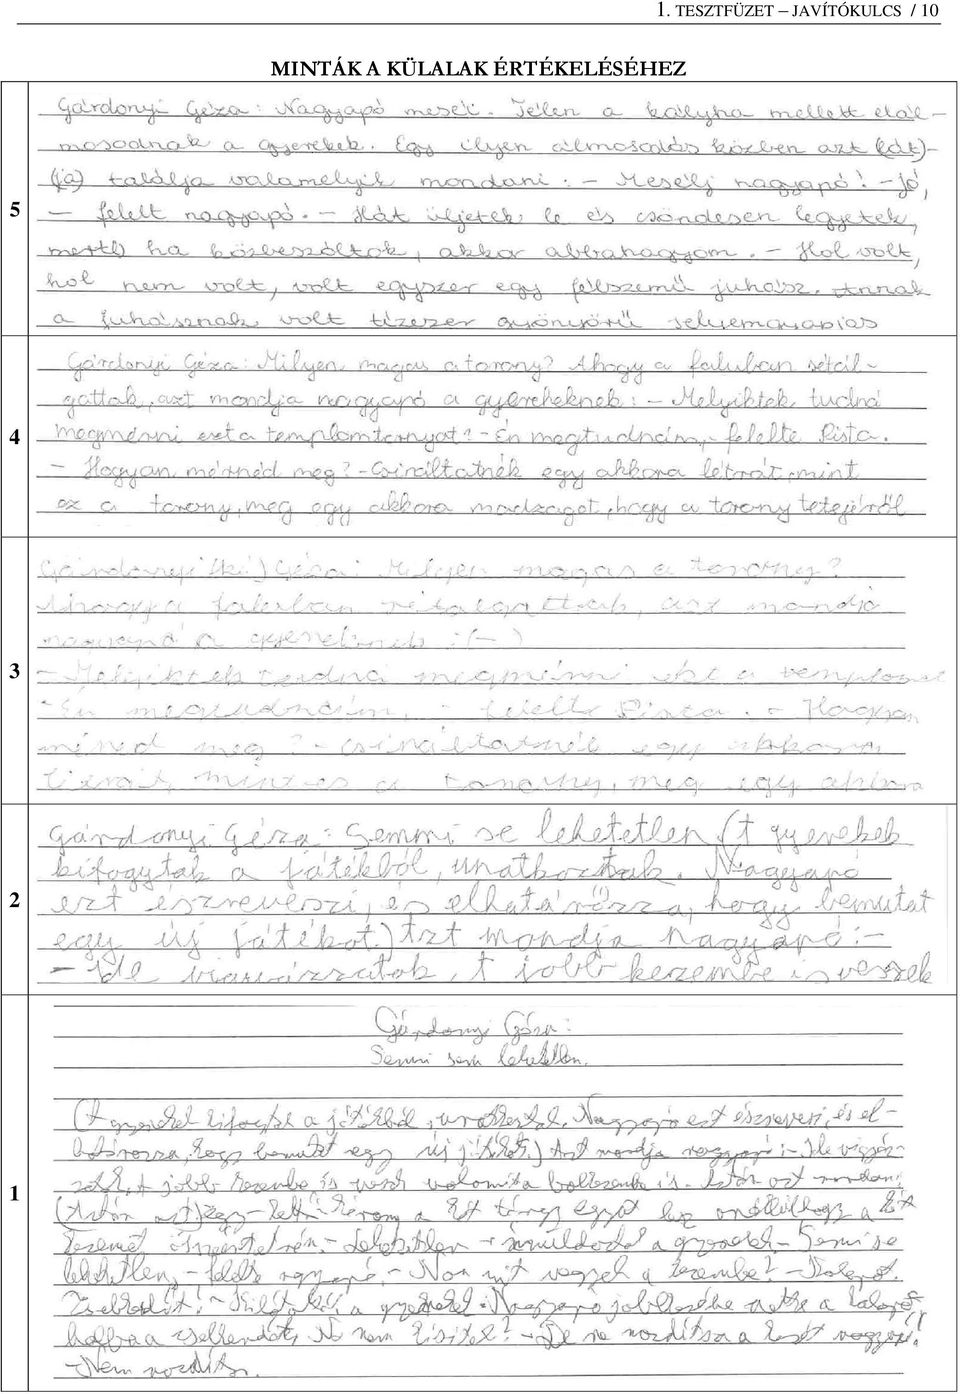 1. TESZTFÜZET – JAVÍTÓKULCS / 10
MINTÁK A KÜLALAK ÉRTÉKELÉSÉHEZ
5
Gárdonyi Géza: Nagyapó meséi. Télen a kályha mellett elál-
mosodnak a gyerekek. Egy ilyen álmosodás közben azt (lát)-
(ja) találja valamelyik mondani: – Mesélj nagyapó! – Jó,
– felelt nagyapó. – Hát üljetek le és csöndesen legyetek,
mert ha közbeszóltok, akkor abbahagyom. – Hol volt,
hol nem volt, volt egyszer egy félszemű juhász. Annak
a juhásznak volt tízezer gyönyörű selyemgyapjas
4
Gárdonyi Géza: Milyen magas a torony? Ahogy a faluban sétál-
gattak, azt mondja nagyapó a gyerekeknek: – Melyiktek tudná
megmérni ezt a templomtornyot? – Én megtudnám, – felelte Pista.
– Hogyan mérnéd meg? – Csináltatnék egy akkora létrát, mint
ez a torony, meg egy akkora madzagot, hogy a torony tetejéről
3
Géza: Milyen magas a torony?
Ahogy a faluban sétálgattak, azt mondja
nagyapó a gyereknek: (–)
– Melyiktek tudná megmérni ezt a templom
– Én megtudnám, – felelte Pista. – Hogyan
mérnéd meg? – Csináltatnék egy akkora
létrát, mint es a torony, meg egy akkora
2
Gárdonyi Géza: Semmi se lehetetlen (A gyerekek
kifogytak a játékból, unatkoztak. Nagyapó
ezt észreveszi, és elhatározza, hogy bemutat
egy új játékot.) Azt mondja nagyapó: –
– Ide vigyázzatok, A jobb kezembe is veszek
1
Gárdonyi Géza:
Semmi sem lehetetlen.
(A gyerekek kifogytak a játékból, unatkoztak. Nagyapó ezt észreveszi, és el-
hátározza, hogy bemutat egy új játékot.) Azt mondja nagyapó: – Ide vigyáz-
zatok, A jobb kezembe is veszek valamit a balkezembe is. Aztán azt mondom:
(Aztán azt) egy – kettő három a két tárgy együtt lesz anélkül hogy a két
kezemet összetenném. – Lehetetlen – ámuldoztak a gyerekek – Semmi se
lehetetlen, – felelte nagyapó. – Na mit vegyek a kezembe? – Kalapot.
Zsebkendőt! – a gyerekek. Nagyapó jobbkezébe vette a kalapot,
balba a zsebkendőt. – De ne mozdítsa a kezét nagyapó.
– Nem mozdítom.